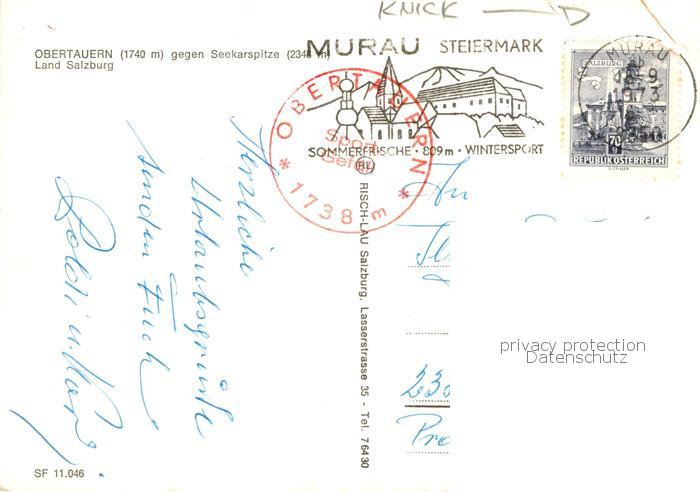 KNICK
OBERTAUERN (1740 m) gegen Seekarspitze (2348 m)
Land Salzburg
MURAU STEIERMARK
SOMMERFRISCHE · 809m · WINTERSPORT
OBERTAUERN
Sport
1738 m
MURAU
1973
SALZBURG
70
REPUBLIK ÖSTERREICH
Herzliche
Urlaubsgrüße
senden Euch
RISCH-LAU Salzburg, Lasserstrasse 35 - Tel. 76430
An
privacy protection
Datenschutz
SF 11.046